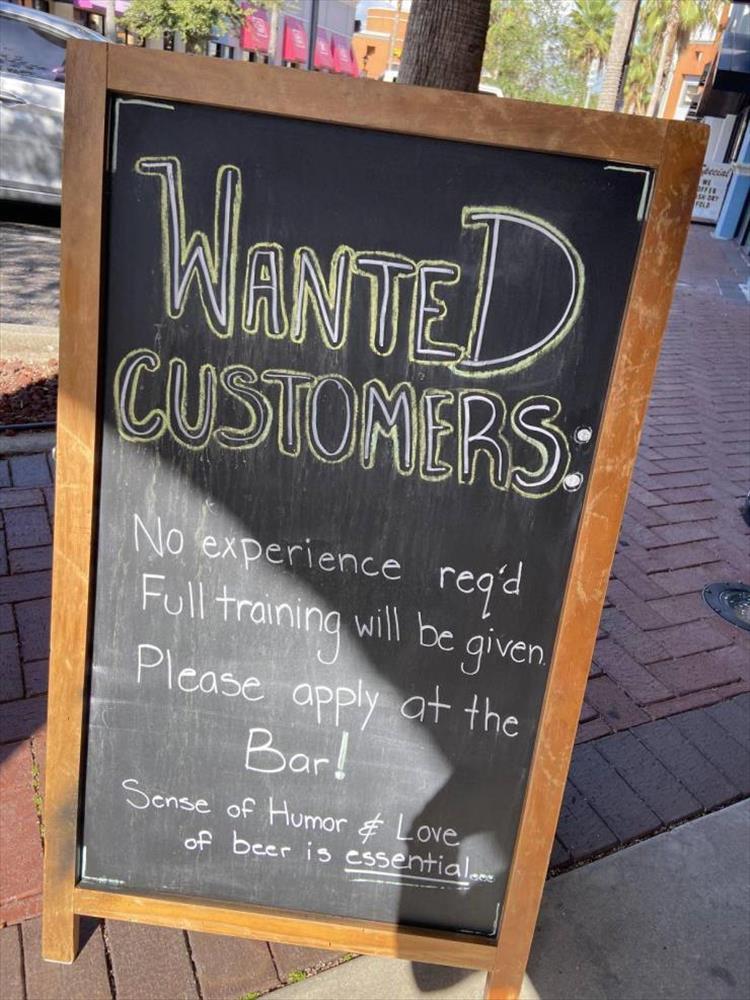 WANTED
CUSTOMERS:
No experience req'd
Full training will be given.
Please apply at the
Bar!
Sense of Humor & Love
of beer is essential...
pecial
WE
OFFER
FOLD